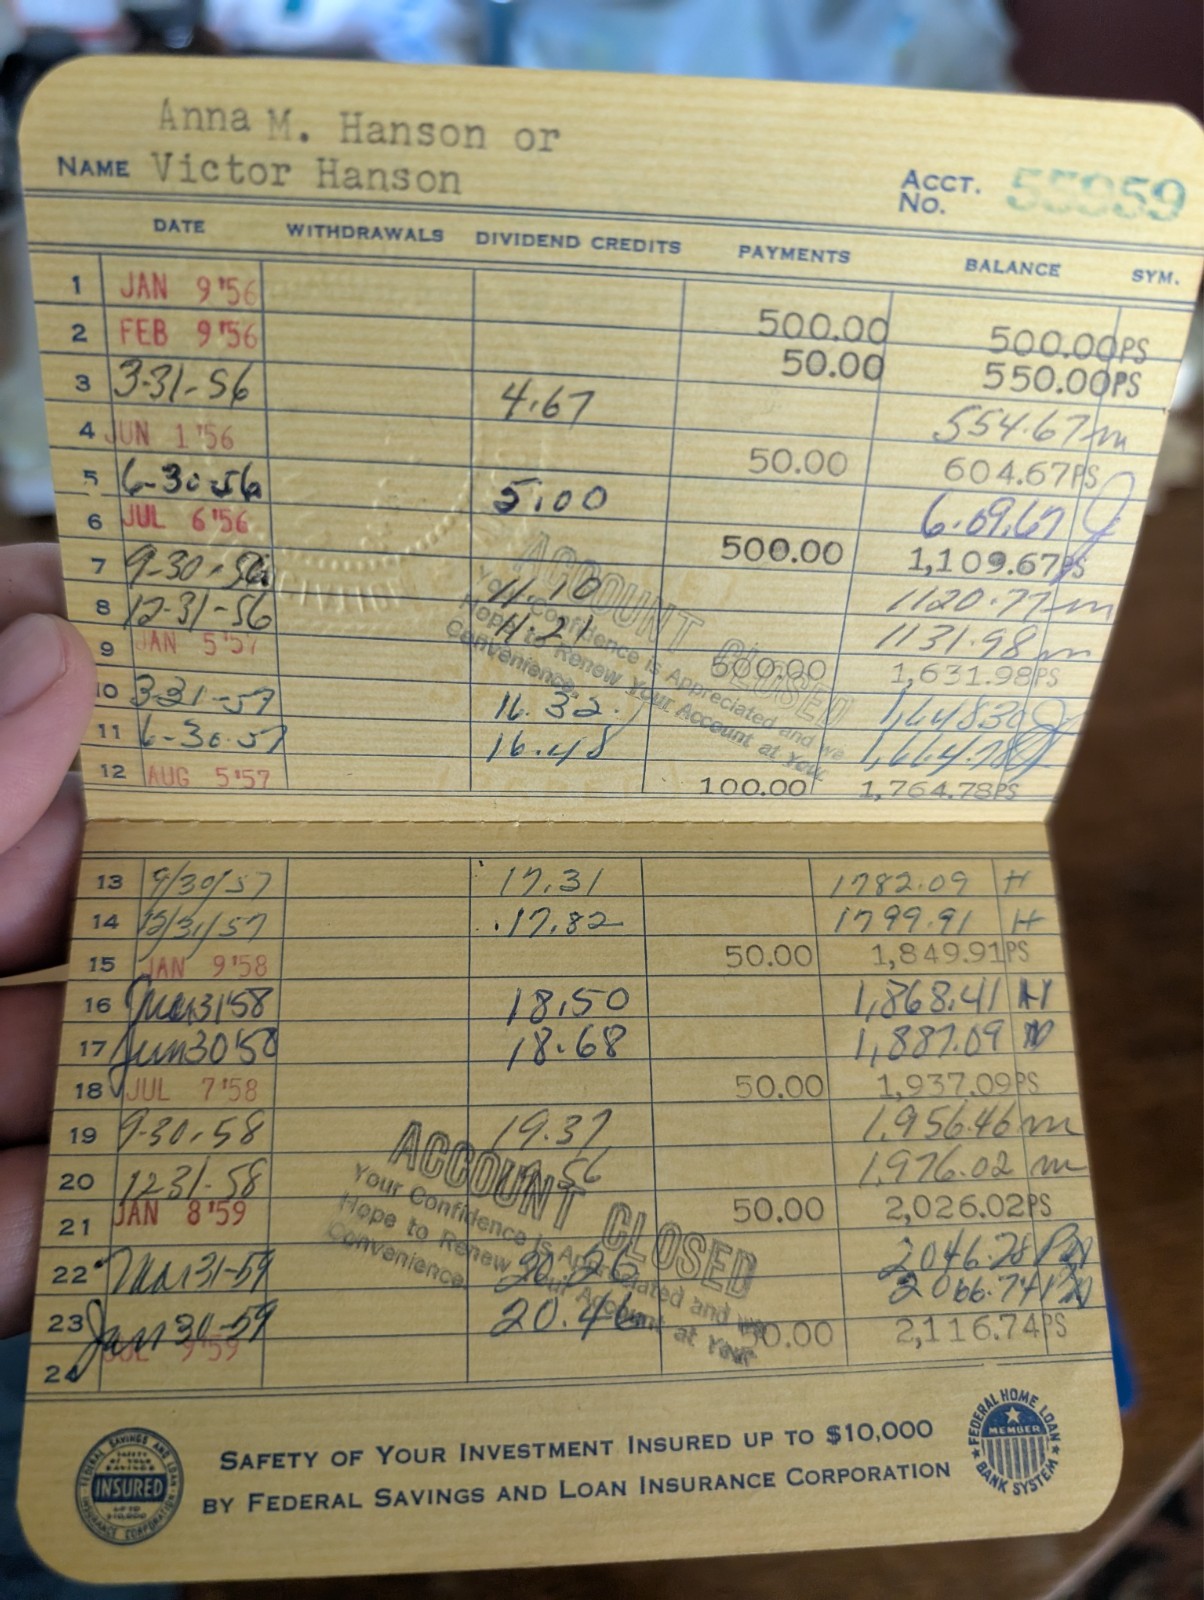 Anna M. Hanson or
NAME Victor Hanson
ACCT. NO. 55959
DATE WITHDRAWALS DIVIDEND CREDITS PAYMENTS BALANCE SYM.
1 JAN 9 '56 500.00 500.00PS
2 FEB 9 '56 50.00 550.00PS
3 3-31-56 4.67 554.67 m
4 JUN 1 '56 50.00 604.67PS
5 6-30-56 5.00 609.67
6 JUL 6 '56 500.00 1,109.67PS
7 9-30-56 11.10 1120.77 m
8 12-31-56 11.21 1131.98 m
9 JAN 5 '57 500.00 1,631.98PS
10 3-31-57 16.32 1,648.30
11 6-30-57 16.48 1,664.78
12 AUG 5 '57 100.00 1,764.78PS
ACCOUNT CLOSED
Your Confidence is Appreciated and we
Hope to Renew Your Account at Your
Convenience.
13 9/30/57 17.31 1782.09 H
14 12/31/57 17.82 1799.91 H
15 JAN 9 '58 50.00 1,849.91PS
16 Mar 31 '58 18.50 1,868.41 H
17 Jun 30 '58 18.68 1,887.09
18 JUL 7 '58 50.00 1,937.09PS
19 9-30-58 19.37 1,956.46 m
20 12-31-58 19.56 1,976.02 m
21 JAN 8 '59 50.00 2,026.02PS
22 Mar 31-59 20.26 2046.28
23 Jun 30-59 20.46 2066.74
24 JUL 9 '59 50.00 2,116.74PS
ACCOUNT CLOSED
Your Confidence is Appreciated and we
Hope to Renew Your Account at Your
Convenience.
FEDERAL SAVINGS AND LOAN INSURANCE CORPORATION
SAFETY OF YOUR SAVINGS
INSURED
UP TO $10,000
SAFETY OF YOUR INVESTMENT INSURED UP TO $10,000
BY FEDERAL SAVINGS AND LOAN INSURANCE CORPORATION
FEDERAL HOME LOAN BANK SYSTEM
MEMBER